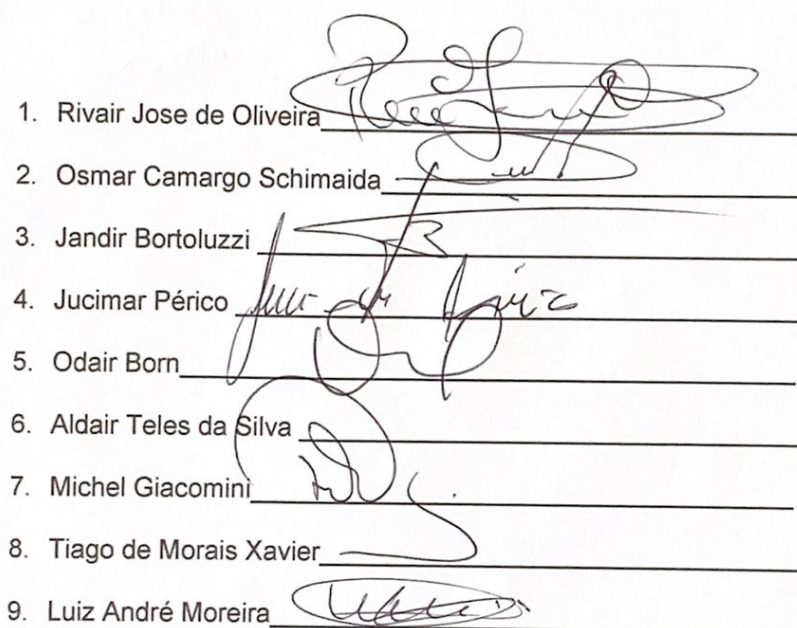 1. Rivair Jose de Oliveira
2. Osmar Camargo Schimaida
3. Jandir Bortoluzzi
4. Jucimar Périco
5. Odair Born
6. Aldair Teles da Silva
7. Michel Giacomini
8. Tiago de Morais Xavier
9. Luiz André Moreira